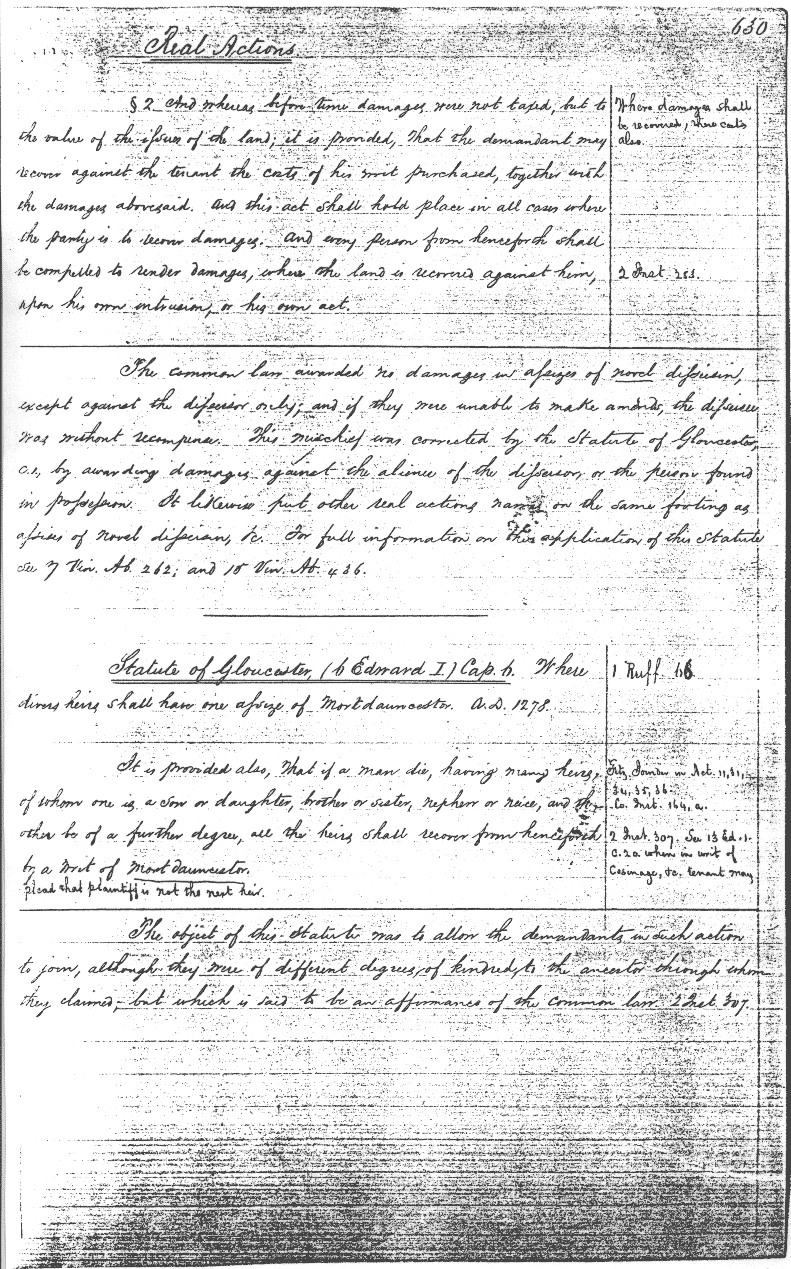 630
Real Actions
§ 2 And whereas before time damages were not taxed, but to
the value of the issues of the land; it is provided, That the demandant may
recover against the tenant the costs of his writ purchased, together with
the damages abovesaid. And this act shall hold place in all cases where
the party is to recover damages. And every person from henceforth shall
be compelled to render damages, where the land is recovered against him,
upon his own intrusion, or his own act.
Where damages shall
be recovered, there costs
also.
2 Inst. 283.
The common law awarded no damages in assizes of novel disseisin,
except against the disseisor only; and if they were unable to make amends, the disseisee
was without recompense. This mischief was corrected by the Statute of Gloucester,
c.1, by awarding damages against the alienee of the disseisor, or the person found
in possession. It likewise put other real actions named on the same footing as
assises of novel disseisin, &c. For full information on this application of this Statute
see 7 Vin. Ab. 262; and 15 Vin. Ab. 436.
Statute of Gloucester, (6 Edward I) Cap. 6. Where
divers heirs shall have one assize of Mortdauncester. A.D. 1278.
1 Ruff. 66
It is provided also, That if a man die, having many heirs,
of whom one is a son or daughter, brother or sister, nephew or neice, and the
other be of a further degree, all the heirs shall recover from henceforth
by a Writ of Mortdauncestor.
plead that plaintiff is not the next heir.
Fitz. Joinder in Act. 11, 31,
34, 35, 36.
Co. Inst. 164, a.
2 Inst. 307. See 13 Ed. 1.
c. 20. where in writ of
Cosinage, &c. tenant may
The object of this Statute was to allow the demandants in such action
to join, although they were of different degrees, of kindred, to the ancestor through whom
they claimed; but which is said to be an affirmance of the common law. 2 Inst. 307.